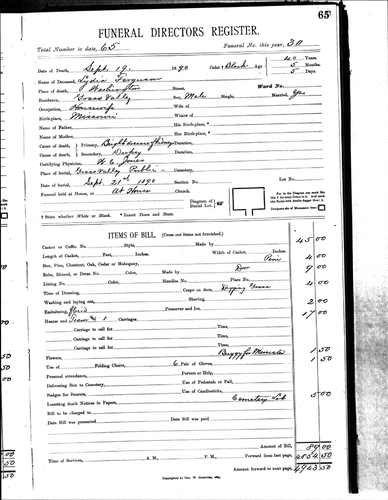 65
FUNERAL DIRECTORS REGISTER.
Total Number to date, 65 Funeral No. this year, 30
Date of Death, Sept. 19. 1890 Color † Black Age 40 Years
5 Months
5 Days
Name of Deceased, Lydia Ferguson
Place of death, Washington Street Ward No.
Residence, Grass Valley Sex, Male Single, Married, Yes
Occupation, Housewife Wife of
Birth-place, Missouri Widow of
Name of Father, His Birth-place *
Name of Mother, Her Birth-place *
Cause of death, Primary, Duration,
Cause of death, Secondary, Dropsy Duration,
Certifying Physician, W. C. Jones
Place of burial, Grass Valley Public Cemetery,
Date of burial, Sept. 21st 1890 Section No. Lot No.
Funeral held at House, At House Diagram of Burial Lot,
† State whether White or Black. * Insert Town and State.
ITEMS OF BILL. (Cross out items not furnished.)
Casket or Coffin No. Style, Made by 45 00
Length of Casket, Feet, Inches Width of Casket, Inches
Box, Pine, Chestnut, Oak, Cedar or Mahogany, Pine 4 00
Robe, Shroud, or Dress No. Color, Made by 9 00
Lining No. Color, Handles No. Plate No. 4 00
Time of Dressing, Crape on door,
Washing and laying out, Shaving, 2 00
Embalming, fluid Preserver and Ice, 4 00
Hearse and Team & 1 Carriages. 17 00
Carriage to call for Time,
Carriage to call for Time,
Carriage to call for Time,
Carriage to call for Time,
Flowers, Buggy for Minister 1 50
Use of Folding Chairs, 6 Pair of Gloves, 1 50
Personal attendance, Porters or Help,
Delivering Box to Cemetery, Use of Pedestals or Pall,
Badges for Bearers, Use of Candlesticks,
Inserting death Notices in Papers, Cemetery Lot 5 00
Bill to be charged to
Date Bill was presented Date Bill was paid
Amount of Bill, 89 00
Time of Services, A. M., P. M. Forward from last page, 4854 50
Amount forward to next page, 4943 50